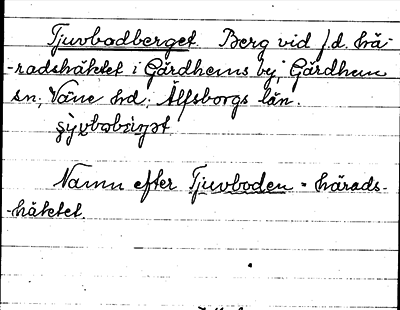 Tjuvbodberget. Berg vid f.d. hä-
-radshäktet i Gärdhems by, Gärdhem
sn; Väne hd; Älfsborgs län.
Namn efter Tjuvboden = härads-
-häktet.